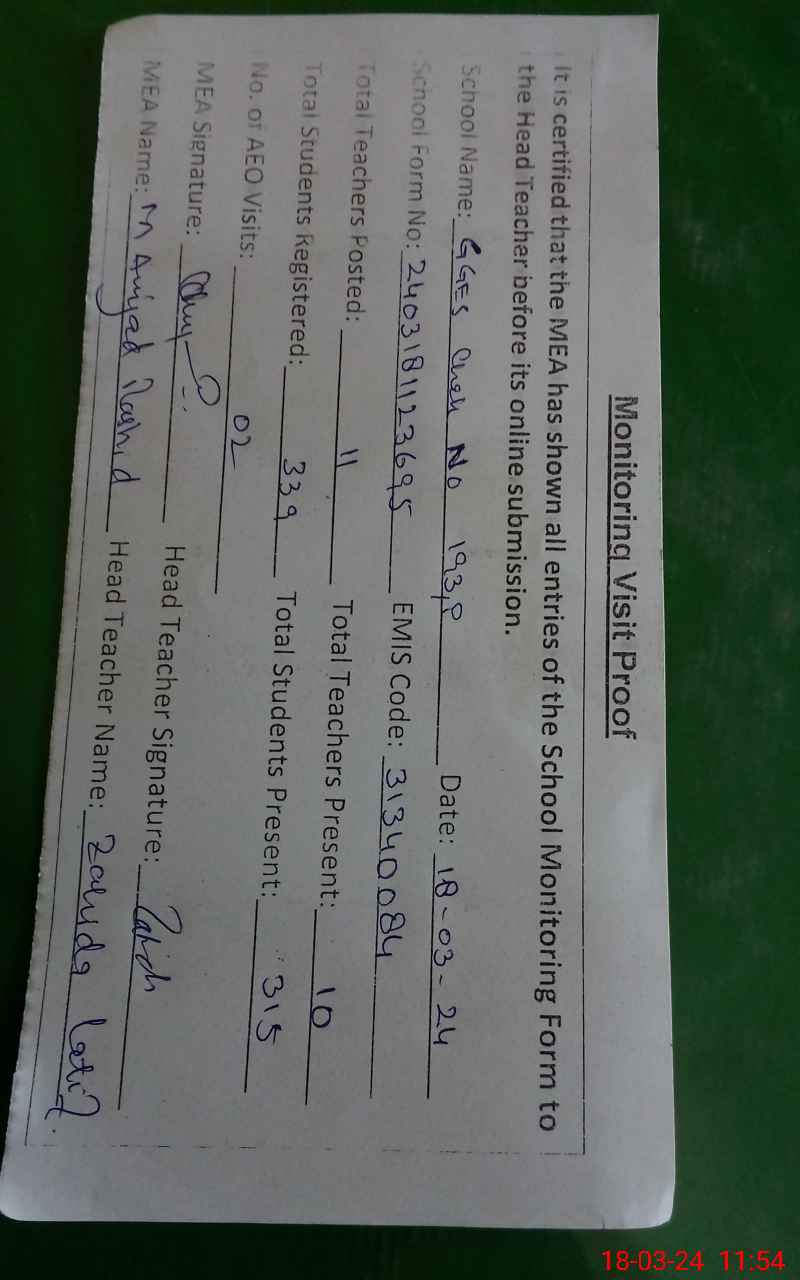 Monitoring Visit Proof
It is certified that the MEA has shown all entries of the School Monitoring Form to
the Head Teacher before its online submission.
School Name: GGES Chak No 193,P Date: 18-03-24
School Form No: 2403181123695 EMIS Code: 31340084
Total Teachers Posted: 11 Total Teachers Present: 10
Total Students Registered: 339 Total Students Present: 315
No. of AEO Visits: 02
MEA Signature: Head Teacher Signature:
MEA Name: M Amjad Rashid Head Teacher Name: Zahida Latif.
18-03-24 11:54